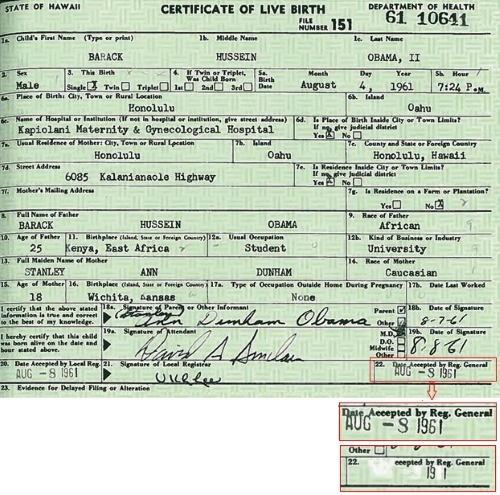 STATE OF HAWAII CERTIFICATE OF LIVE BIRTH DEPARTMENT OF HEALTH
FILE NUMBER 151 61 10641
1a. Child's First Name (Type or print) 1b. Middle Name 1c. Last Name
BARACK HUSSEIN OBAMA, II
2. Sex 3. This Birth 4. If Twin or Triplet, Was Child Born 5a. Birth Date Month Day Year 5b. Hour
Male Single X Twin Triplet 1st 2nd 3rd August 4, 1961 7:24 P.M.
6a. Place of Birth: City, Town or Rural Location 6b. Island
Honolulu Oahu
6c. Name of Hospital or Institution (If not in hospital or institution, give street address) 6d. Is Place of Birth Inside City or Town Limits?
If no, give judicial district
Kapiolani Maternity & Gynecological Hospital Yes X No
7a. Usual Residence of Mother: City, Town or Rural Location 7b. Island 7c. County and State or Foreign Country
Honolulu Oahu Honolulu, Hawaii
7d. Street Address 7e. Is Residence Inside City or Town Limits?
If no, give judicial district
6085 Kalanianaole Highway Yes X No
7f. Mother's Mailing Address 7g. Is Residence on a Farm or Plantation?
Yes No X
8. Full Name of Father 9. Race of Father
BARACK HUSSEIN OBAMA African
10. Age of Father 11. Birthplace (Island, State or Foreign Country) 12a. Usual Occupation 12b. Kind of Business or Industry
25 Kenya, East Africa Student University
13. Full Maiden Name of Mother 14. Race of Mother
STANLEY ANN DUNHAM Caucasian
15. Age of Mother 16. Birthplace (Island, State or Foreign Country) 17a. Type of Occupation Outside Home During Pregnancy 17b. Date Last Worked
18 Wichita, Kansas None
I certify that the above stated information is true and correct to the best of my knowledge. 18a. Signature of Parent or Other Informant Parent Other 18b. Date of Signature
(Stanley) Ann Dunham Obama 8-7-61
I hereby certify that this child was born alive on the date and hour stated above. 19a. Signature of Attendant M.D. D.O. Midwife Other 19b. Date of Signature
David A Sinclair 8-8-61
20. Date Accepted by Local Reg. 21. Signature of Local Registrar 22. Date Accepted by Reg. General
AUG -8 1961 UKLee AUG -8 1961
23. Evidence for Delayed Filing or Alteration
Date Accepted by Reg. General
AUG -8 1961
Other
22. ccepted by Reg. General
19 1